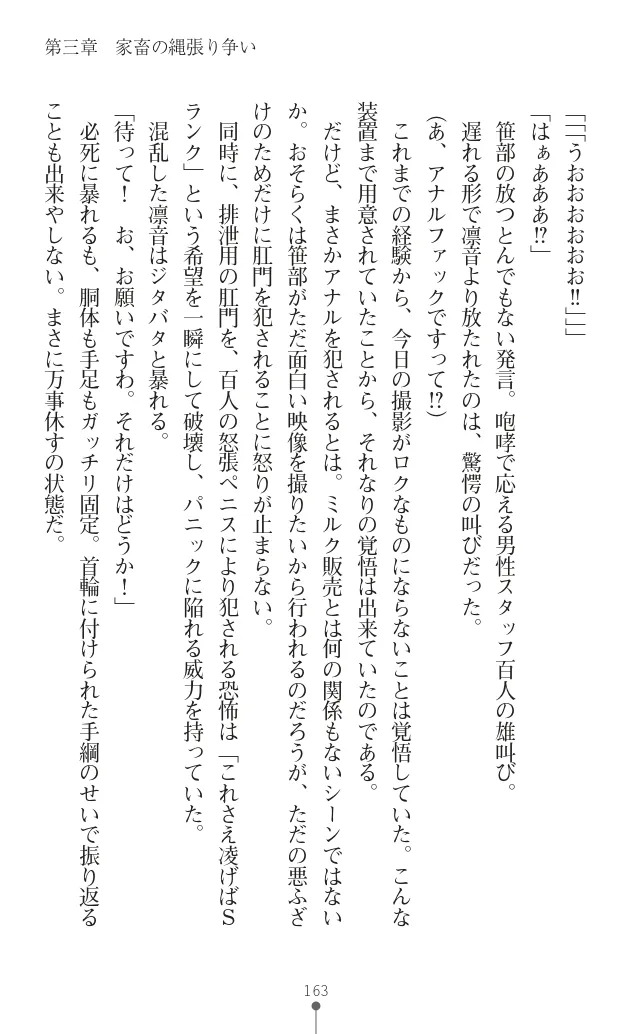 第三章　家畜の縄張り争い
「「「うおおおおおお!!」」」
「はぁあああ!?」
　笹部の放つとんでもない発言。咆哮で応える男性スタッフ百人の雄叫び。
　遅れる形で凛音より放たれたのは、驚愕の叫びだった。
（あ、アナルファックですって!?）
　これまでの経験から、今日の撮影がロクなものにならないことは覚悟していた。こんな
装置まで用意されていたことから、それなりの覚悟は出来ていたのである。
　だけど、まさかアナルを犯されるとは。ミルク販売とは何の関係もないシーンではない
か。おそらくは笹部がただ面白い映像を撮りたいから行われるのだろうが、ただの悪ふざ
けのためだけに肛門を犯されることに怒りが止まらない。
　同時に、排泄用の肛門を、百人の怒張ペニスにより犯される恐怖は「これさえ凌げばS
ランク」という希望を一瞬にして破壊し、パニックに陥れる威力を持っていた。
　混乱した凛音はジタバタと暴れる。
「待って！　お、お願いですわ。それだけはどうか！」
　必死に暴れるも、胴体も手足もガッチリ固定。首輪に付けられた手綱のせいで振り返る
ことも出来やしない。まさに万事休すの状態だ。
163